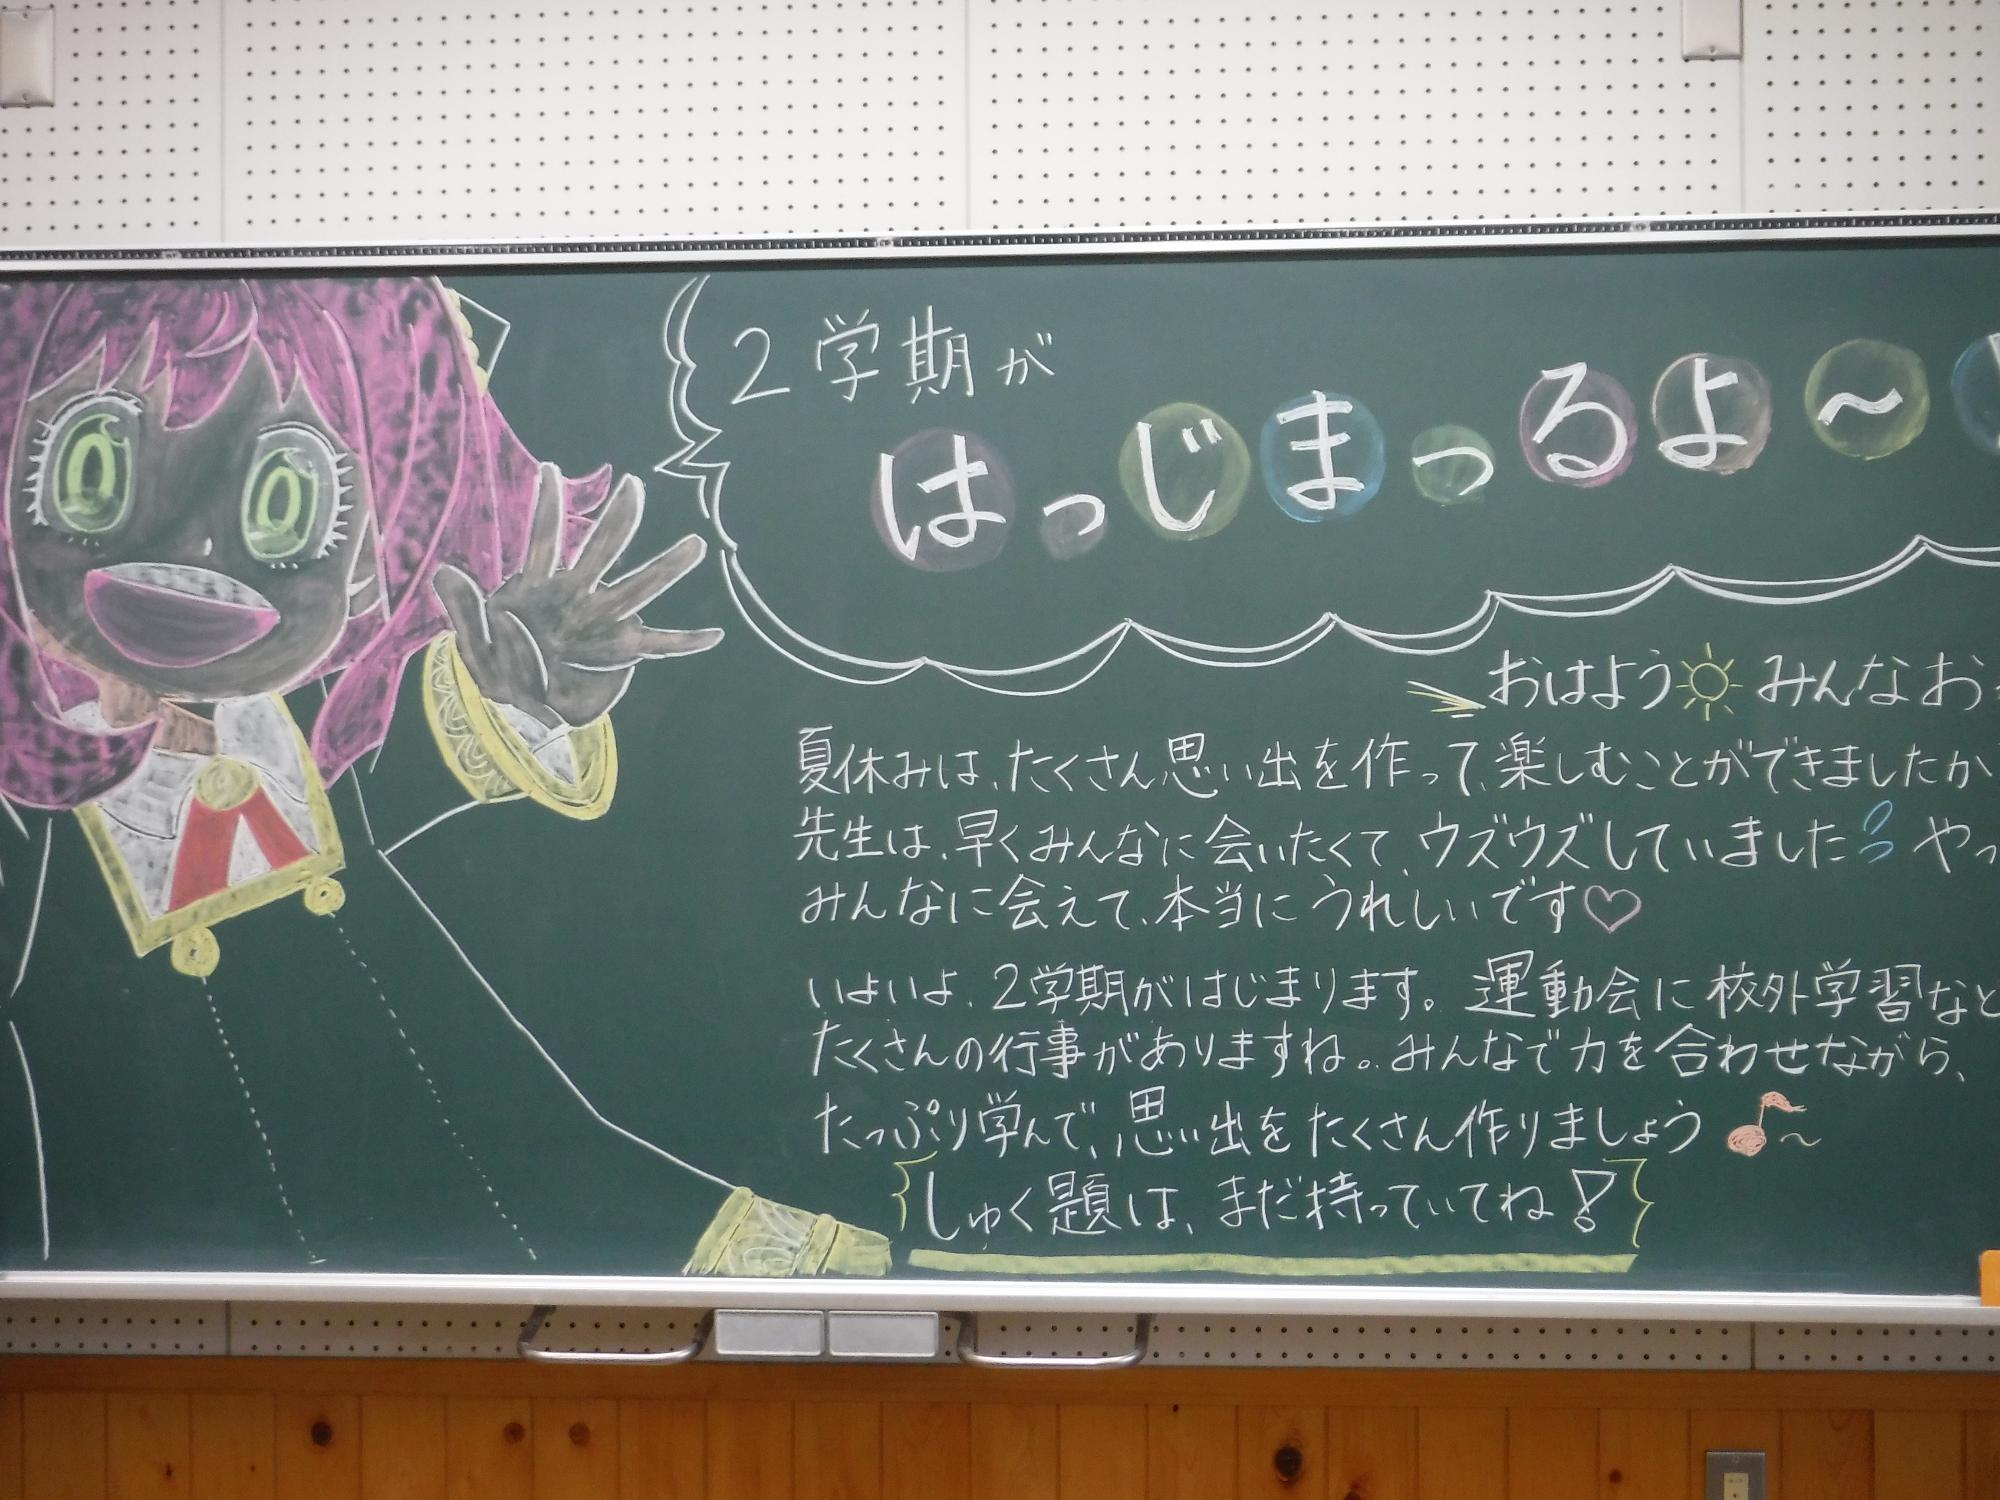 2学期が
はっじまっるよ～
おはよう みんなお
夏休みは、たくさん思い出を作って、楽しむことができましたか
先生は、早くみんなに会いたくて、ウズウズしていました やっ
みんなに会えて、本当にうれしいです♡
いよいよ、2学期がはじまります。運動会に校外学習など
たくさんの行事がありますね。みんなで力を合わせながら、
たっぷり学んで、思い出をたくさん作りましょう♪～
しゅく題は、まだ持っていてね!